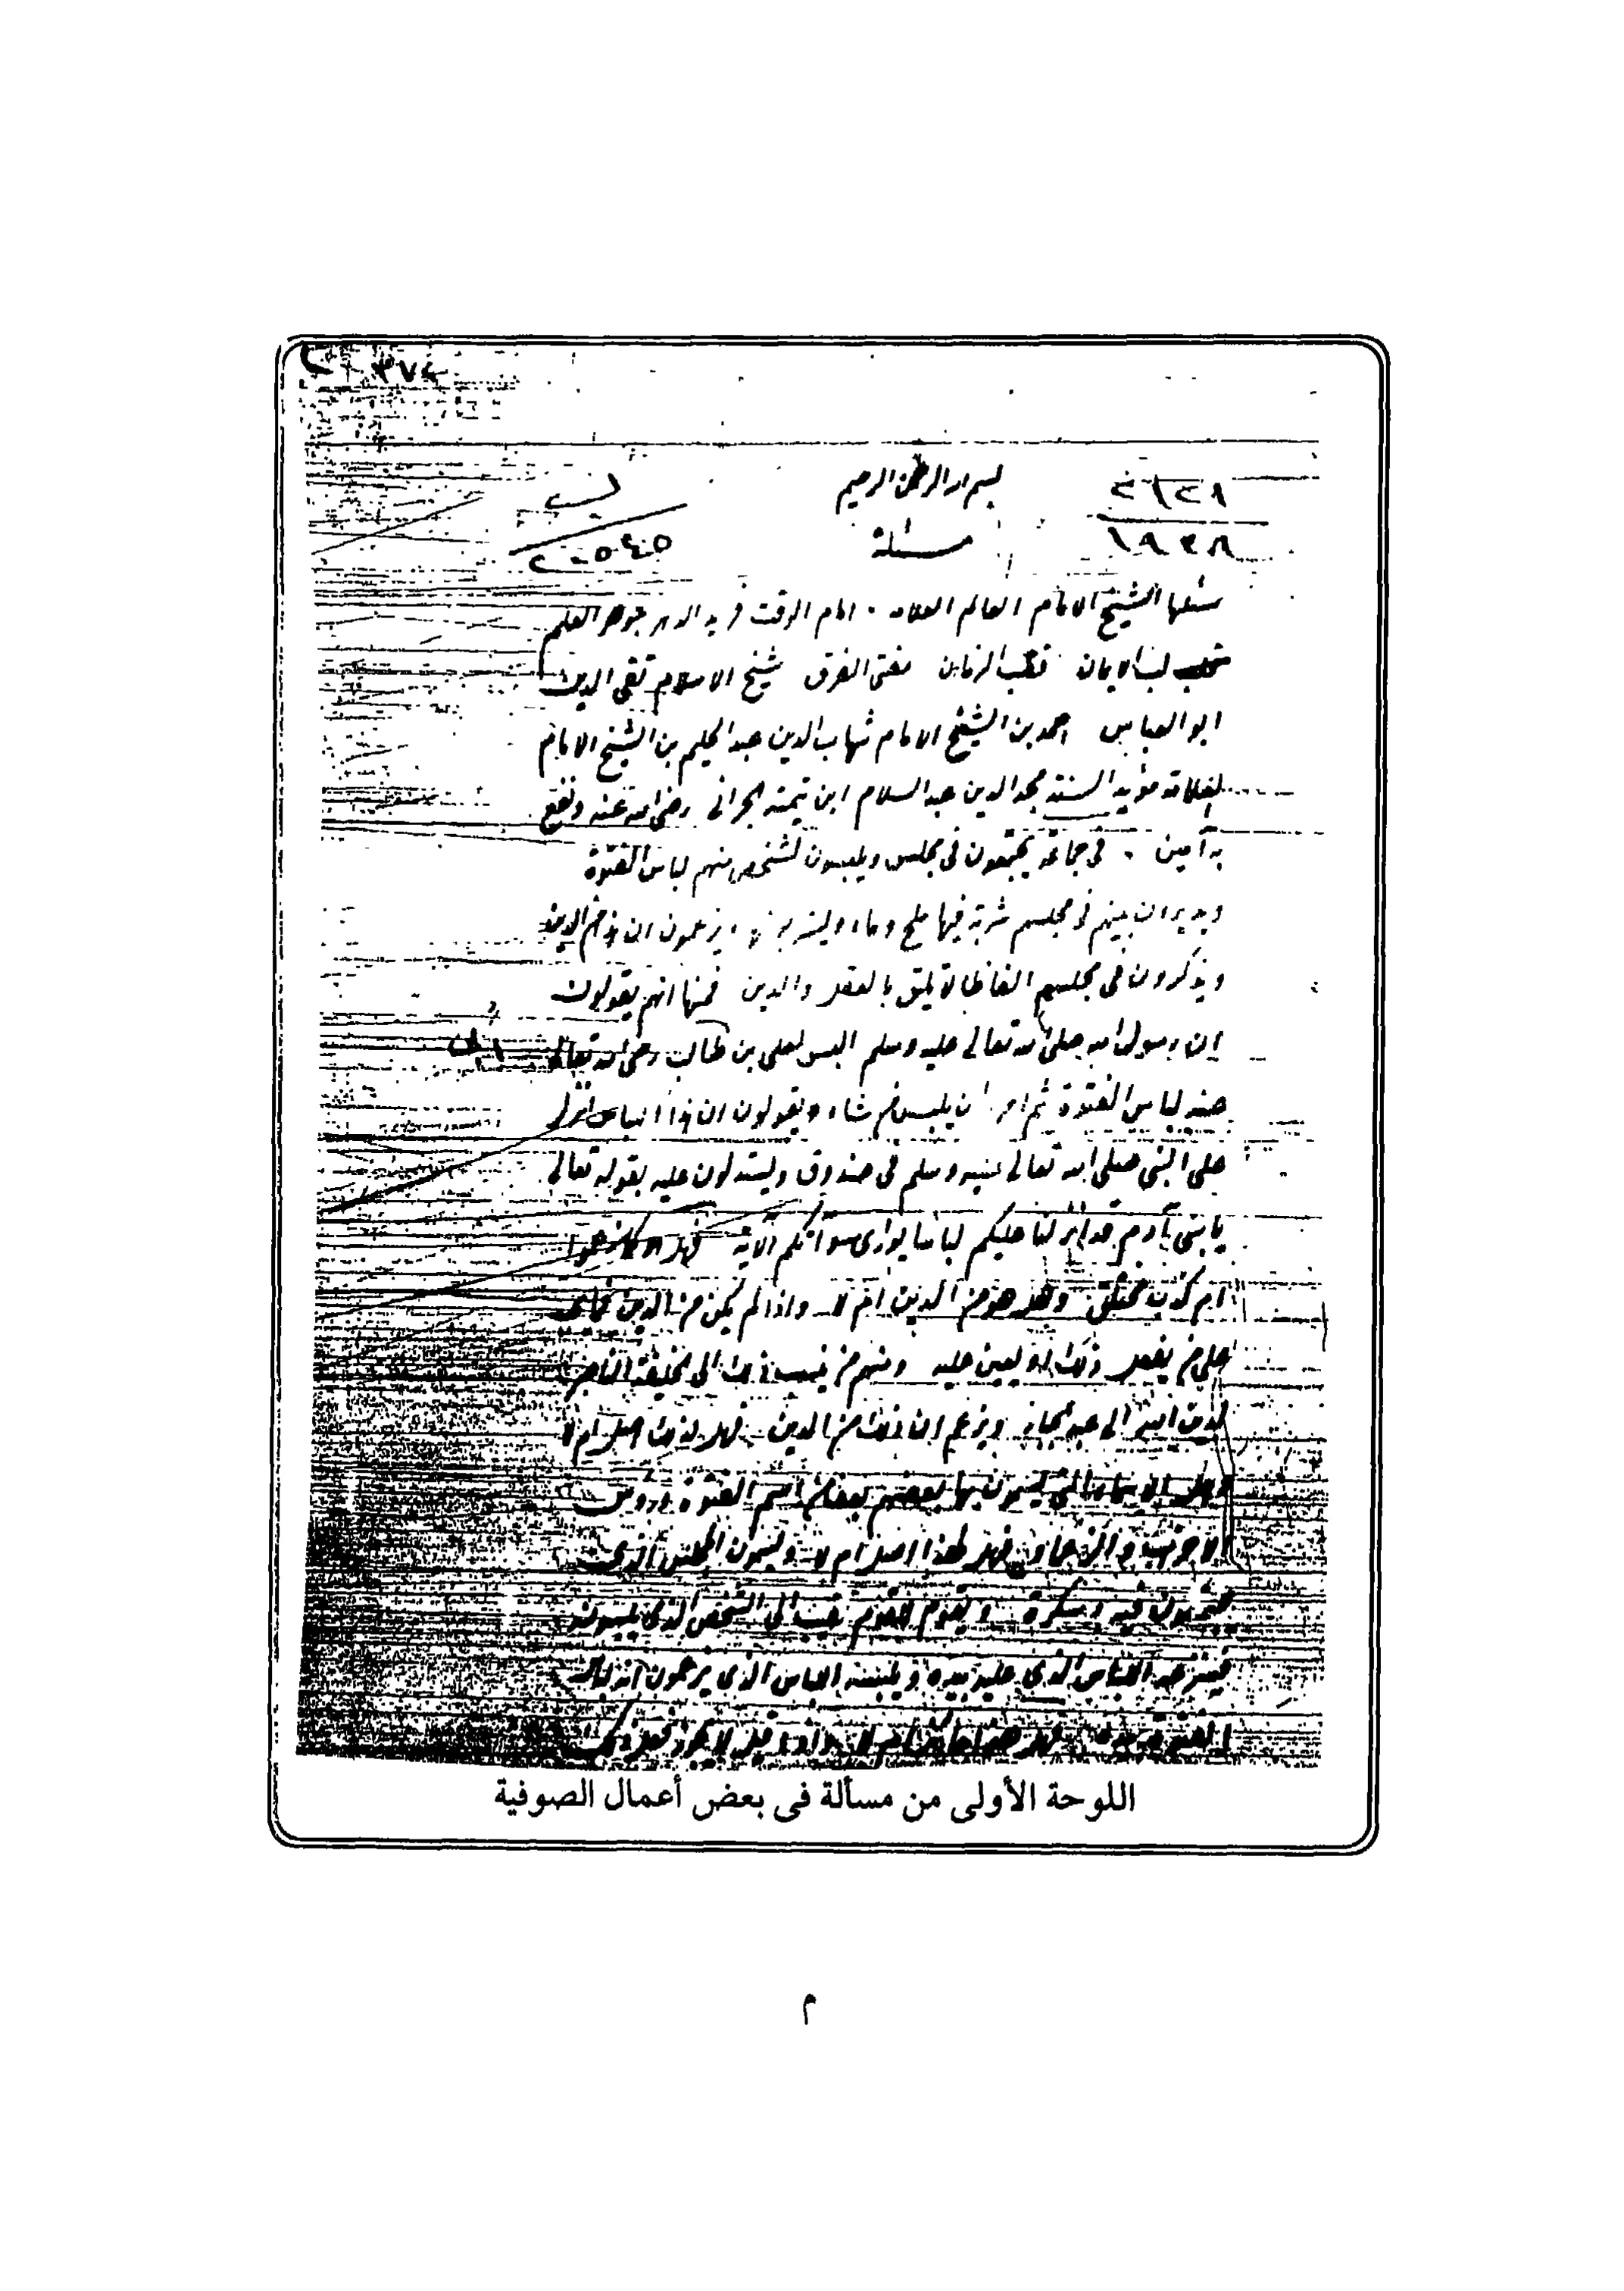 ٣٧٤
بسم الله الرحمن الرحيم
٢١٢٨
١٩٣٨
ب
٢٠٥٤٥
مسئلة
سئلها الشيخ الامام العالم العلامه امام الوقت فريد الدهر جوهر العلم
لب الايمان قطب الزمان مفتى الفرق شيخ الاسلام تقى الدين
ابو العباس احمد بن الشيخ الامام شهاب الدين عبد الحليم بن الشيخ الامام
العلامة مؤيد السنة مجد الدين عبد السلام ابن تيمية الحرانى رضى الله عنه ونفع
به آمين . فى جماعة يجتمعون فى مجلس ويلبسون لشخص منهم لباس الفتوة
ويديرون بينهم فى مجلسهم شربة فيها ملح وماء ويشربونها ويزعمون ان هذا من الدين
ويذكرون فى مجلسهم الفاظا لا تليق بالعقل والدين فمنها انهم يقولون
ان رسول الله صلى الله تعالى عليه وسلم البس لعلى بن طالب رضى الله تعالى
عنه لباس الفتوة ثم امره ان يلبس من شاء ويقولون ان هذا اللباس انزل
على النبى صلى الله تعالى عليه وسلم فى صندوق ويستدلون عليه بقوله تعالى
يا بنى آدم قد انزلنا عليكم لباسا يوارى سوآتكم الآية فهل هو كما زعموا
ام كذب مختلق وهل هو من الدين ام لا واذا لم يكن من الدين فما يجب
على من يفعل ذلك او يعين عليه ومنهم من ينسب ذلك الى الخليفة الناصر
لدين الله الى عبد الجبار ويزعم ان ذلك من الدين فهل لذلك اصل ام لا
وهل الاسماء التى يسمون بها بعضهم بعضا من اسم الفتوة ورؤس
الاحزاب والزعماء فهل لهذا اصل ام لا ويسمون المجلس الذى
يجتمعون فيه دسكرة ويقوم للقوم نقيب الى الشخص الذى يلبسونه
فينزعه اللباس الذى عليه بيده ويلبسه اللباس الذى يزعمون انه لباس
الفتوة بيده فهل هذا جائز ام لا واذا قيل لا يجوز فعل ذلك
اللوحة الأولى من مسألة فى بعض أعمال الصوفية
م